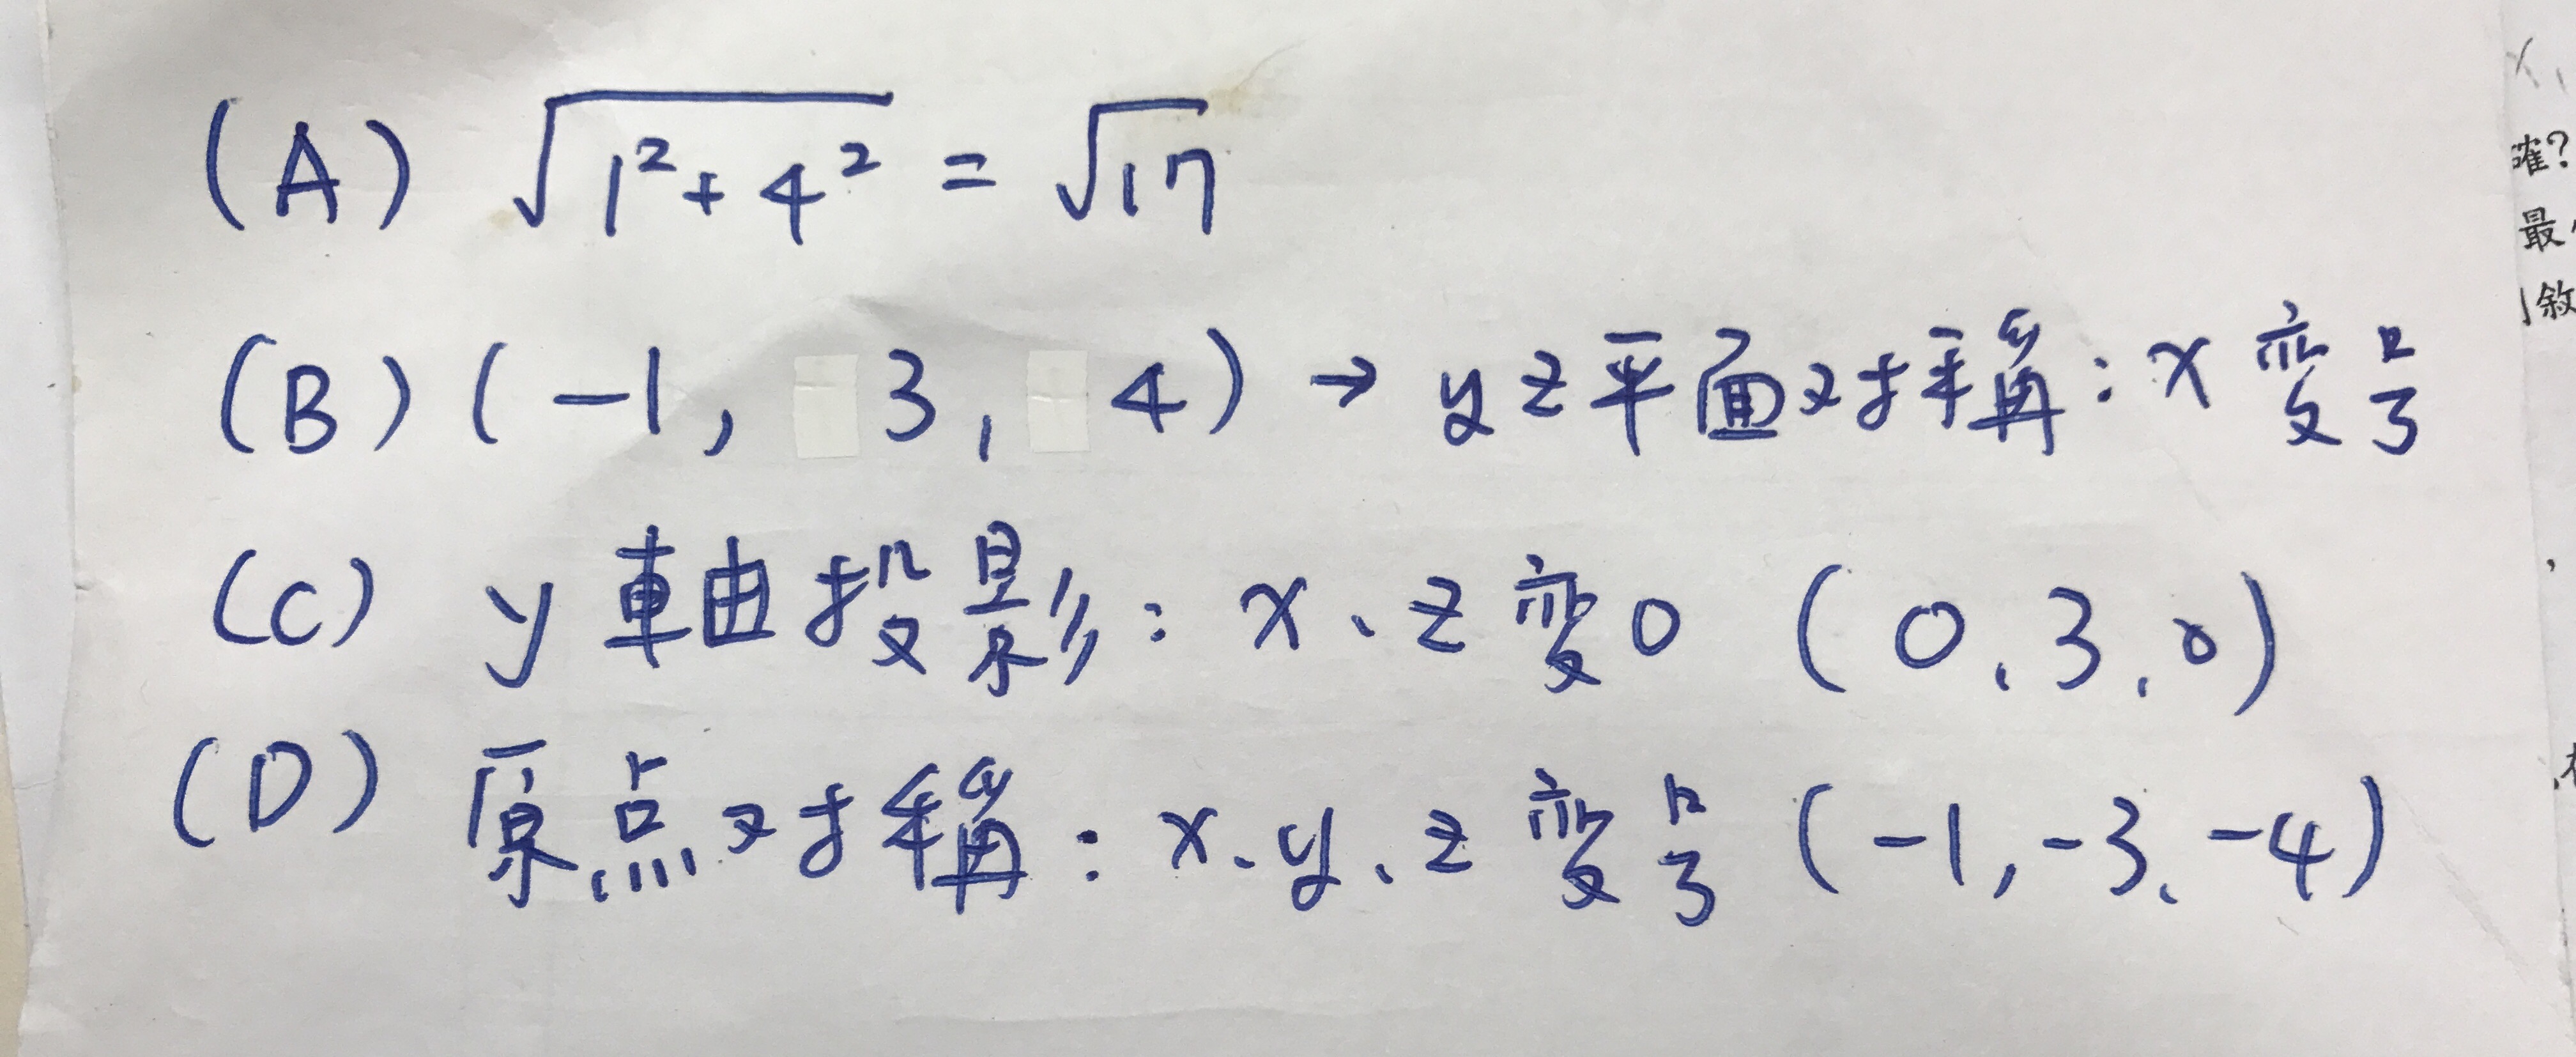 (A) √(1²+4²) = √17
(B) (-1, 3, 4) → yz平面对稱:x变号
(C) y軸投影:x、z变0 (0,3,0)
(D) 原点对稱:x、y、z变号 (-1,-3,-4)
確?
最
敘